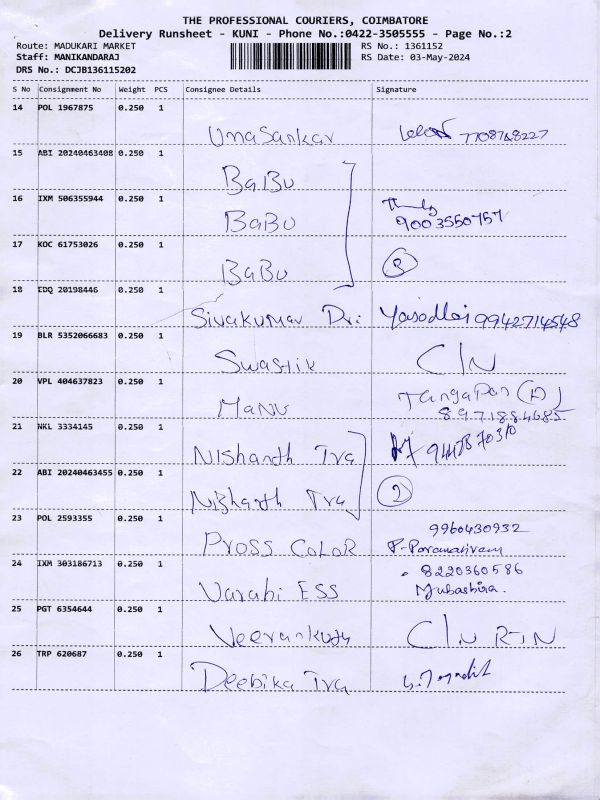 THE PROFESSIONAL COURIERS, COIMBATORE
Delivery Runsheet - KUNI - Phone No.:0422-3505555 - Page No.:2
Route: MADUKARI MARKET RS No.: 1361152
Staff: MANIKANDARAJ RS Date: 03-May-2024
DRS No.: DCJB136115202
S No Consignment No Weight PCS Consignee Details Signature
14 POL 1967875 0.250 1
UmaSankar 7708748227
15 ABI 20240463408 0.250 1
BaBu
16 IXM 506355944 0.250 1
BaBu 9003550757
17 KOC 61753026 0.250 1
BaBu 3
18 EDQ 20198446 0.250 1
Sivakumar Dri Yasodha 9942714548
19 BLR 5352066683 0.250 1
Swastik C/N
20 VPL 404637823 0.250 1
Manu Tangapon (A)
8971884685
21 NKL 3334145 0.250 1
Nishanth Tra
22 ABI 20240463455 0.250 1
Nishanth Tra 2
23 POL 2593355 0.250 1
9960430932
Pross CoLoR P. Paramasivam
24 IXM 303186713 0.250 1
8220360586
Varahi ESS Mubashira.
25 PGT 6354644 0.250 1
Veerankutty C/N RTN
26 TRP 620687 0.250 1
Deebika Tra